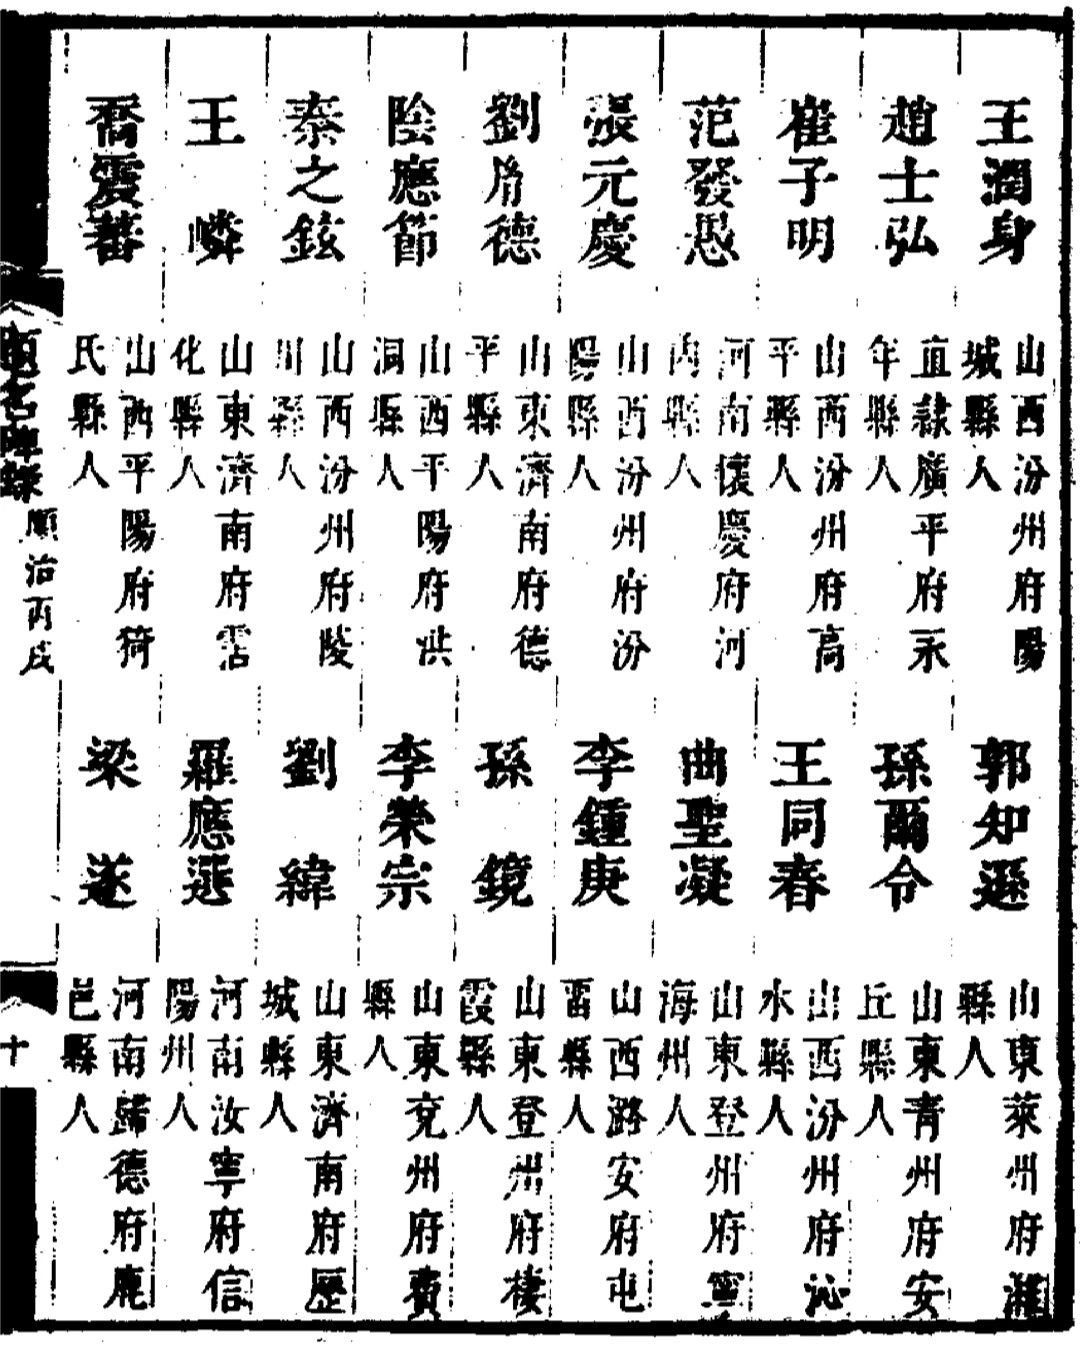 王潤身 山西汾州府陽城縣人
趙士弘 直隸廣平府永年縣人
崔子明 山西汾州府高平縣人
范發愚 河南懷慶府河內縣人
張元慶 山西汾州府汾陽縣人
劉胤德 山東濟南府德平縣人
陰應節 山西平陽府洪洞縣人
秦之鉉 山西汾州府陵川縣人
王嶙 山東濟南府霑化縣人
喬震蕃 山西平陽府猗氏縣人
郭知遜 山東萊州府濰縣人
孫爾令 山東青州府安丘縣人
王同春 山西汾州府沁水縣人
曲聖凝 山東登州府寧海州人
李鍾庚 山西潞安府屯留縣人
孫鏡 山東登州府棲霞縣人
李榮宗 山東兗州府費縣人
劉緯 山東濟南府歷城縣人
羅應選 河南汝寧府信陽州人
梁遂 河南歸德府鹿邑縣人
題名碑錄 順治丙戌 十